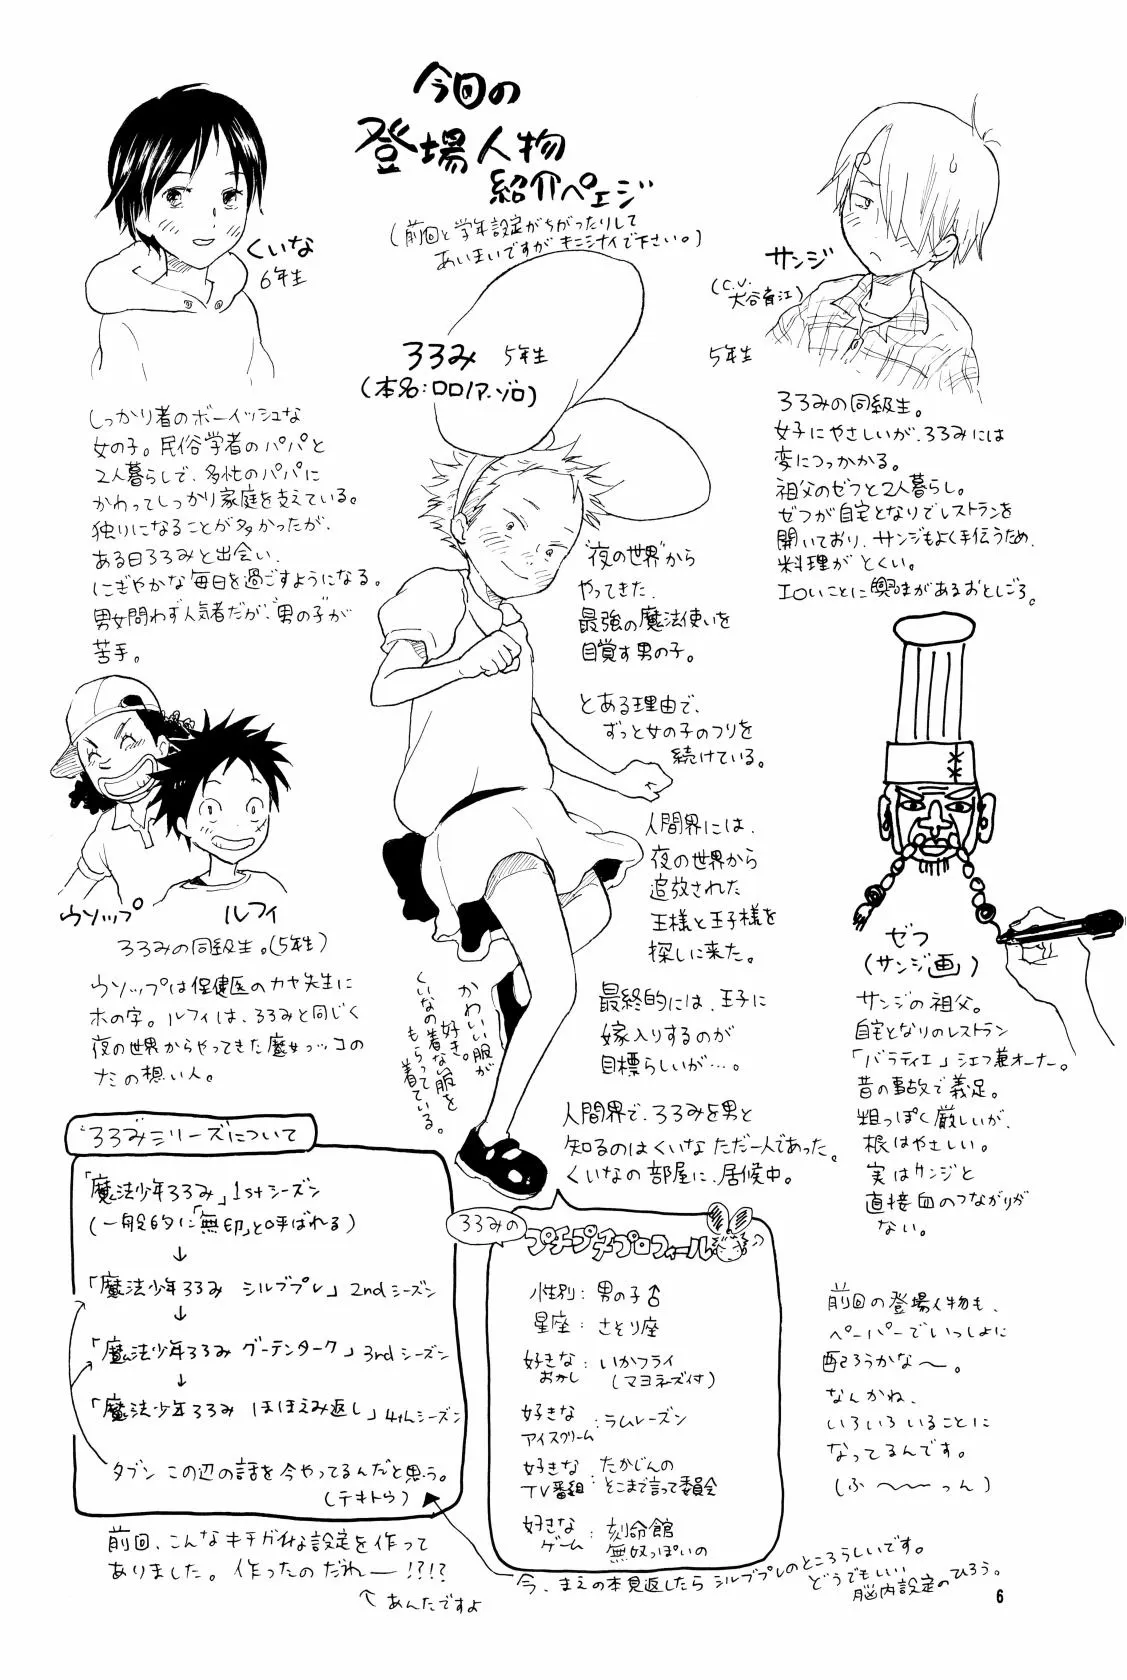 今回の
登場人物
紹介ペェジ
(前回と学年設定がちがったりして
あいまいですが キニシナイで下さい。)
くいな
6年生
しっかり者のボーイッシュな
女の子。民俗学者のパパと
2人暮らしで、多忙のパパに
かわってしっかり家庭を支えている。
独りになることが多かったが、
ある日ろろみと出会い、
にぎやかな毎日を過ごすようになる。
男女問わず人気者だが、"男の子"が
苦手。
ろろみ 5年生
(本名:ロロノア・ゾロ)
"夜の世界"から
やってきた、
最強の魔法使いを
目覚す男の子。
とある理由で、
ずっと女の子のフリを
続けている。
人間界には、
夜の世界から
追放された
王様と王子様を
探しに来た。
最終的には、王子に
嫁入りするのが
目標らしいが…。
人間界で、ろろみを男と
知るのはくいな ただ一人であった。
くいなの部屋に、居候中。
かわいい服が
好き。
くいなの着ない服を
もらって
着ている。
サンジ
(C.V.
大谷育江)
5年生
ろろみの同級生。
女子にやさしいが、ろろみには
変につっかかる。
祖父のゼフと2人暮らし。
ゼフが自宅となりでレストランを
開いており、サンジもよく手伝うため、
料理がとくい。
エロいことに興味があるおとしごろ。
ウソップ
ルフィ
ろろみの同級生。(5年生)
ウソップは保健医のカヤ先生に
ホの字。ルフィは、ろろみと同じく
夜の世界からやってきた魔女っコの
たの想い人。
ゼフ
(サンジ画)
サンジの祖父。
自宅となりのレストラン
「バラティエ」シェフ兼オーナー。
昔の事故で義足。
粗っぽく厳しいが、
根はやさしい。
実はサンジと
直接血のつながりが
ない。
"ろろみ"シリーズについて
「魔法少年ろろみ」1stシーズン
(一般的に「無印」と呼ばれる)
↓
「魔法少年ろろみ シルブプレ」2ndシーズン
↓
「魔法少年ろろみ グーテンターク」3rdシーズン
↓
「魔法少年ろろみ ほほえみ返し」4thシーズン
タブン この辺の話を今やってるんだと思う。
(テキトウ)
前回、こんなキチガイな設定を作って
ありました。作ったの だれー!?!?
↑あんたですよ
ろろみの
プチプチプロフィール
性別:男の子♂
星座:さそり座
好きな
おかし:いかフライ
(マヨネーズ付)
好きな
アイスクリーム:ラムレーズン
好きな
TV番組:たかじんの
そこまで言って委員会
好きな
ゲーム:刻命館
無双っぽいの
今、まえの本見返したら シルブプレのところらしいです。
どうでもいい
脳内設定のひろう。
前回の登場人物も、
ペーパーでいっしょに
配ろうかな〜。
なんかね、
いろいろいることに
なってるんです。
(ふ〜〜っん)
6